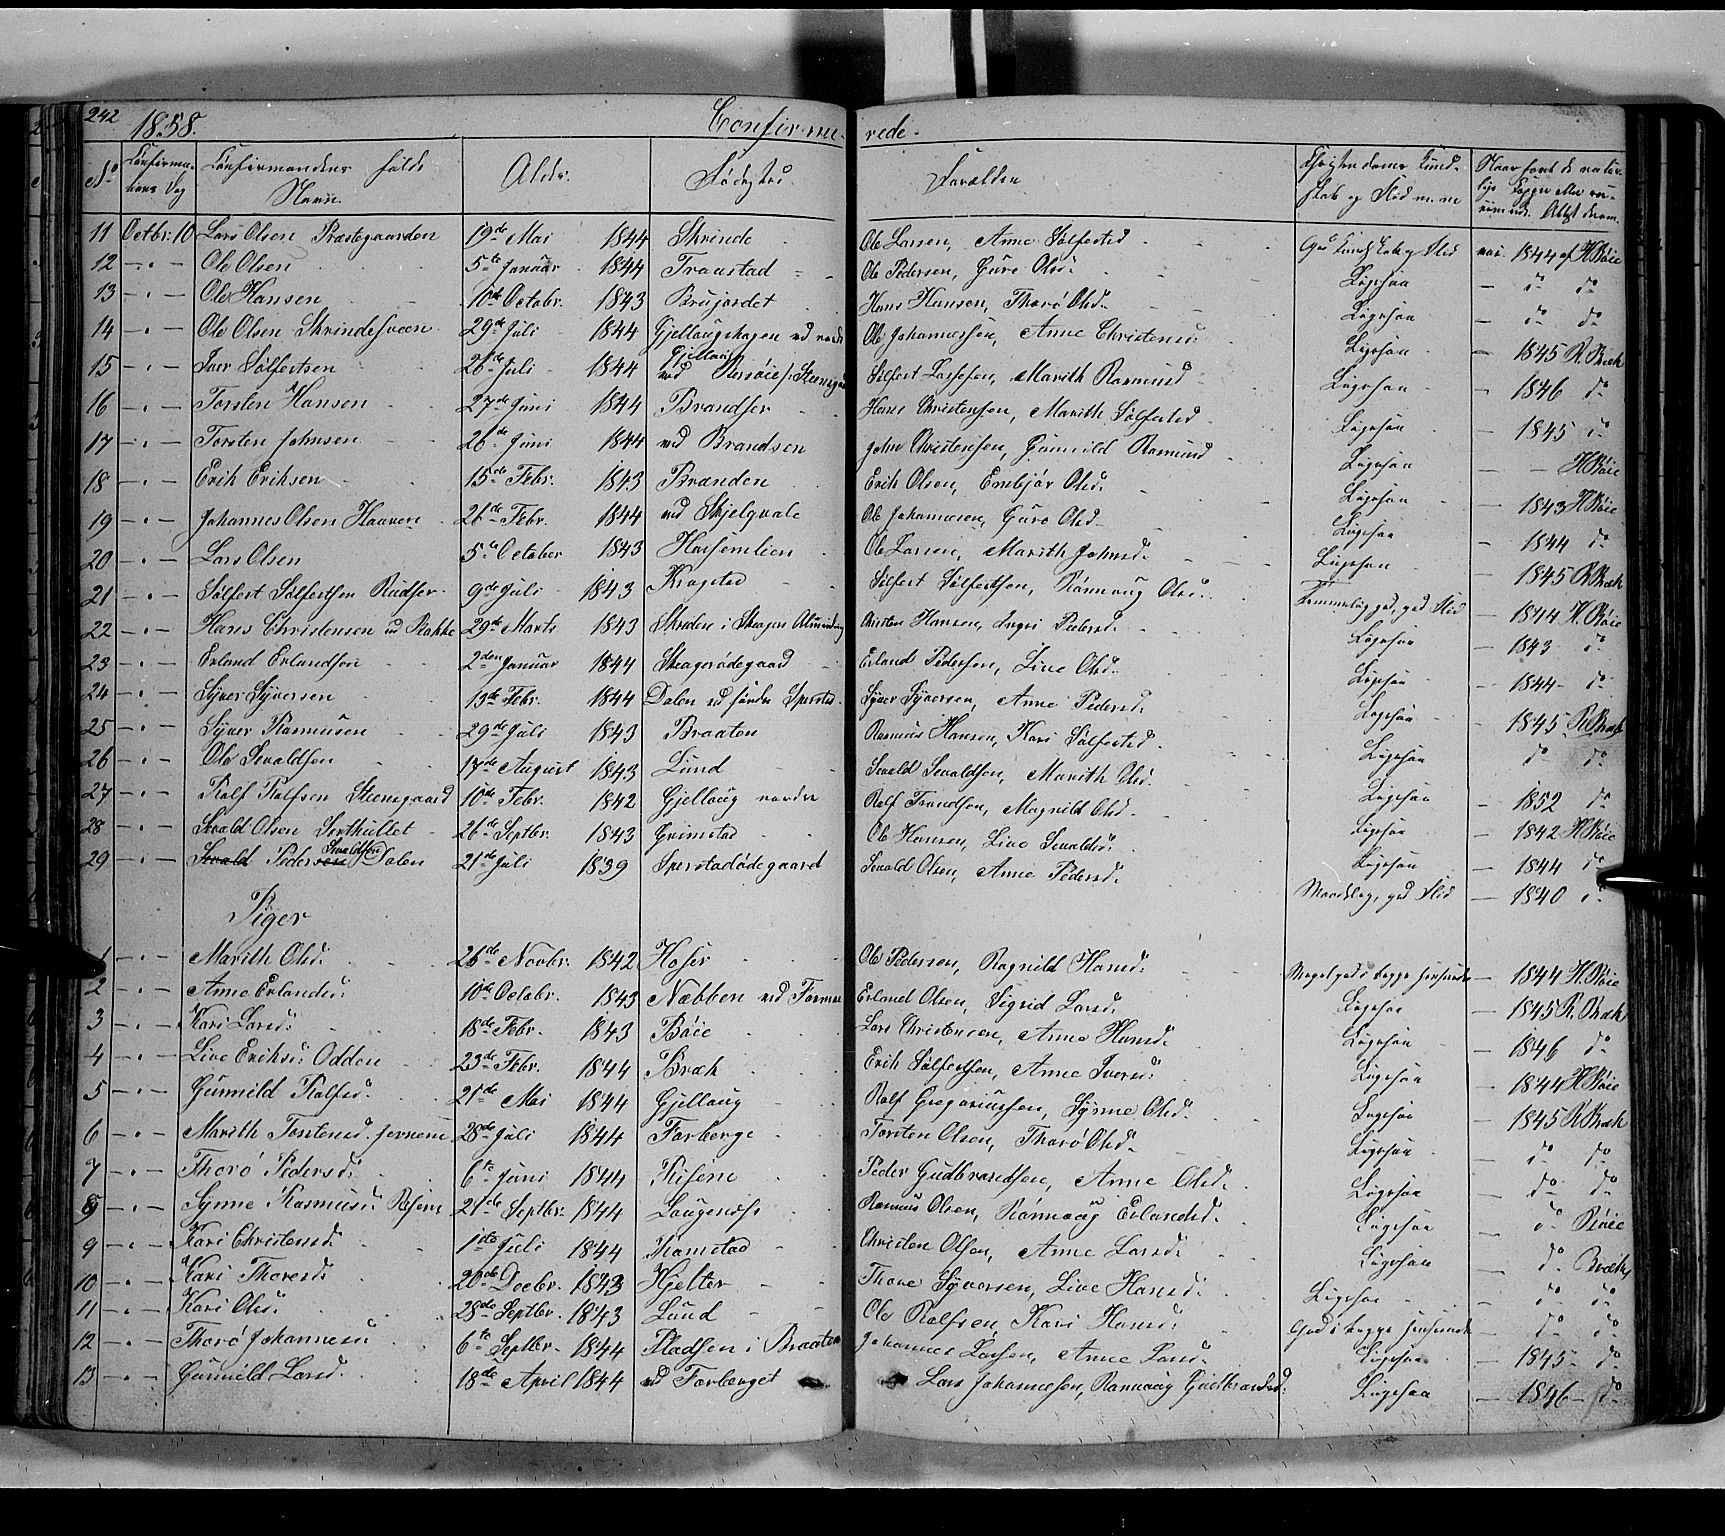 242 1858. Confirme- rede.
No Confirma- tions Dag Confirmandens fulde Navn. Alder. Fødested. Forældre Christendoms Kund- skab og Flid m.m Naar havt de natur- lige Kopper eller va- ccinerede. Attest derom.
11 Octbr. 10 Lars Olsen Præstegaarden 19de Mai 1844 Skrinde Ole Larsen, Anne Sølfestd God Kundskab og Flid vac. 1844 af H Bøie
12 - " - Ole Olsen 5te Januar 1844 Traastad Ole Pedersen, Guro Olsd: Ligesaa - do do
13 - " - Ole Hansen 10de Octobr. 1843 Brujordet Hans Hansen, Thorø Olsd. Ligesaa - do do
14 - " - Ole Olsen Skrindesveen 29de Juli 1844 Gjellaugshagen ud nordr Ole Johannessen, Anne Christensd: Ligesaa - 1845 R. Bræk
15 - " - Iver Sølfestsen 26de Juli 1844 Gjellaug Sølfest Marith Rasmusd Ligesaa - 1846 do
16 - " - Torsten Hansen 27de Juni 1844 Brandser Hans Christensen, Marith Sølfestd. Ligesaa - 1845 do
17 - " - Torsten Johnsen 26de Juni 1844 ud Brandsen John Christensen, Gunnild Rasmusd Ligesaa - - H Bøie
18 - " - Erik Eriksen 15de Febr. 1843 Brænden Erik Olsen, Embjør Olsd: Ligesaa - 1843 H Bøie
19 - " - Johannes Olsen Haaven 26de Febr. 1844 ud Skjelqvale Ole Johannesen, Guro Olsd Ligesaa - 1844 do
20 - " - Lars Olsen 5te October 1843 Hassemlien Ole Larsen, Marith Johnsd. Ligesaa - 1845 R. Bræk
21 - " - Sølfest Sølfestsen Rudser. 9de Juli 1843 Kragstad Sølfest Sølfestsen, Rønnaug Olsd: Temmelig god, god Flid - 1844 H. Bøie
22 - " - Hans Christensen ud Bakke 29de Marts 1843 Skreden i Skagen Christen Hansen, Ingri Pedersd. Ligesaa 1843 do
23 - " - Erland Erlandsen 2den Januar 1844 Skagsødegaard Erland Pedersen, Live Olsd. Ligesaa - 1844 - do
24 - " - Syver Syversen 13de Febr. 1844 Dalen ud søndre Sperstad. Syver Syversen, Anne Pedersd. Ligesaa - 1845 R. Bræk
25 - " - Syver Rasmusen 29de Juli 1843 Braaten Rasmus Hansen, Kari Sølfestd. Ligesaa do do
26 - " - Ole Sevaldsen 17de August 1843 Lund Sevald Sevaldsen, Marith Olsd: Ligesaa - 1852 do
27 - " - Rolf Rolfsen Steensgaard 10de Febr. 1842 Gjellaug nordre Rolf Trondsen, Magnild Olsd. Ligesaa - 1842 H. Bøie
28 - " - Sevald Olsen Serthullet 26de Septbr. 1843 Grimstad Ole Hansen, Live Sevaldsd: Ligesaa - 1844 do
29 - " - Sevald Pedersen Sevaldsen Dalen 21de Juli 1839 Sperstadødegaard Sevald Olsen, Anne Pedersd. Maadelig, god Flid - 1840 do
Piger
1 - " - Marith Olsd. 26de Novbr. 1842 Høser Ole Pedersen, Ragnild Hansd. Meget god i begge Henseende - 1844 H. Bøie
2 - " - Anne Erlandsd: 10de Octobr. 1843 Næbben ud Formo Erland Olsen, Sigrid Larsd. Ligesaa - 1845 R. Bræk
3 - " - Kari Larsd: 18de Febr. 1843 Bøie Lars Christensen, Anne Hansd. Ligesaa - 1846 do
4 - " - Live Eriksd: Odden 23de Febr. 1844 Bræk Erik Sølfestsen, Anne Iversd: Ligesaa - 1844 H Bøie
5 - " - Gunnild Rolfsd. 21de Mai 1844 Gjellaug Rolf Gregoriussen, Synne Olsd. Ligesaa - 1845 R. Bræk
6 - " - Marith Torstensd. Jernem 28de Juli 1844 Forberge Torsten Olsen, Thorø Olsd. Ligesaa - do do
7 - " - Thorø Pedersd: 6te Juni 1844 Risene Peder Gudbrandsen, Anne Olsd. Ligesaa - do do
8 - " - Synne Rasmusd: 21de Septbr. 1844 Rasmus Olsen, Rønnaug Erlandsd. Ligesaa - do Bøie
9 - " - Kari Christensd: 1ste Juli 1844 Ramstad Christen Olsen, Anne Larsd: Ligesaa - do Bræk
10 - " - Kari Thoresd: 20de Decbr. 1843 Hjelter Thore Syversen, Live Hansd: Ligesaa - do do
11 - " - Kari Olsd: 28de Septbr. 1843 Lund Ole Rolfsen, Kari Hansd: God i begge Henseende - do do
12 - " - Thorø Johannesd 6te Septbr. 1844 Pladsen i Braaten Johannes Larsen, Anne Larsd. Ligesaa - 1845 - do
13 - " - Gunnild Larsd. 18de April 1844 ud Forberget Lars Johannesen, Rønnaug Gudbrandsd: Ligesaa - 1846 - do